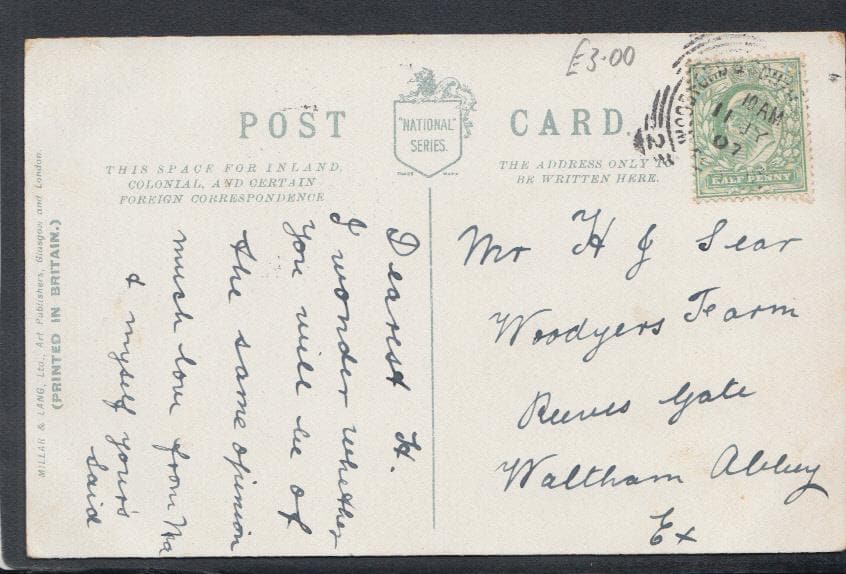 £3.00
POST CARD.
"NATIONAL"
SERIES.
TRADE MARK
THIS SPACE FOR INLAND,
COLONIAL, AND CERTAIN
FOREIGN CORRESPONDENCE
THE ADDRESS ONLY TO
BE WRITTEN HERE.
10 AM
11 JY
07
HALF PENNY
Mr H J Sear
Woodyers Farm
Reeves Gate
Waltham Abbey
Ex
Dearest H.
I wonder whether
you will be of
the same opinion
much love from Ma
& myself yours
Said
MILLAR & LANG, Ltd., Art Publishers, Glasgow and London.
(PRINTED IN BRITAIN.)